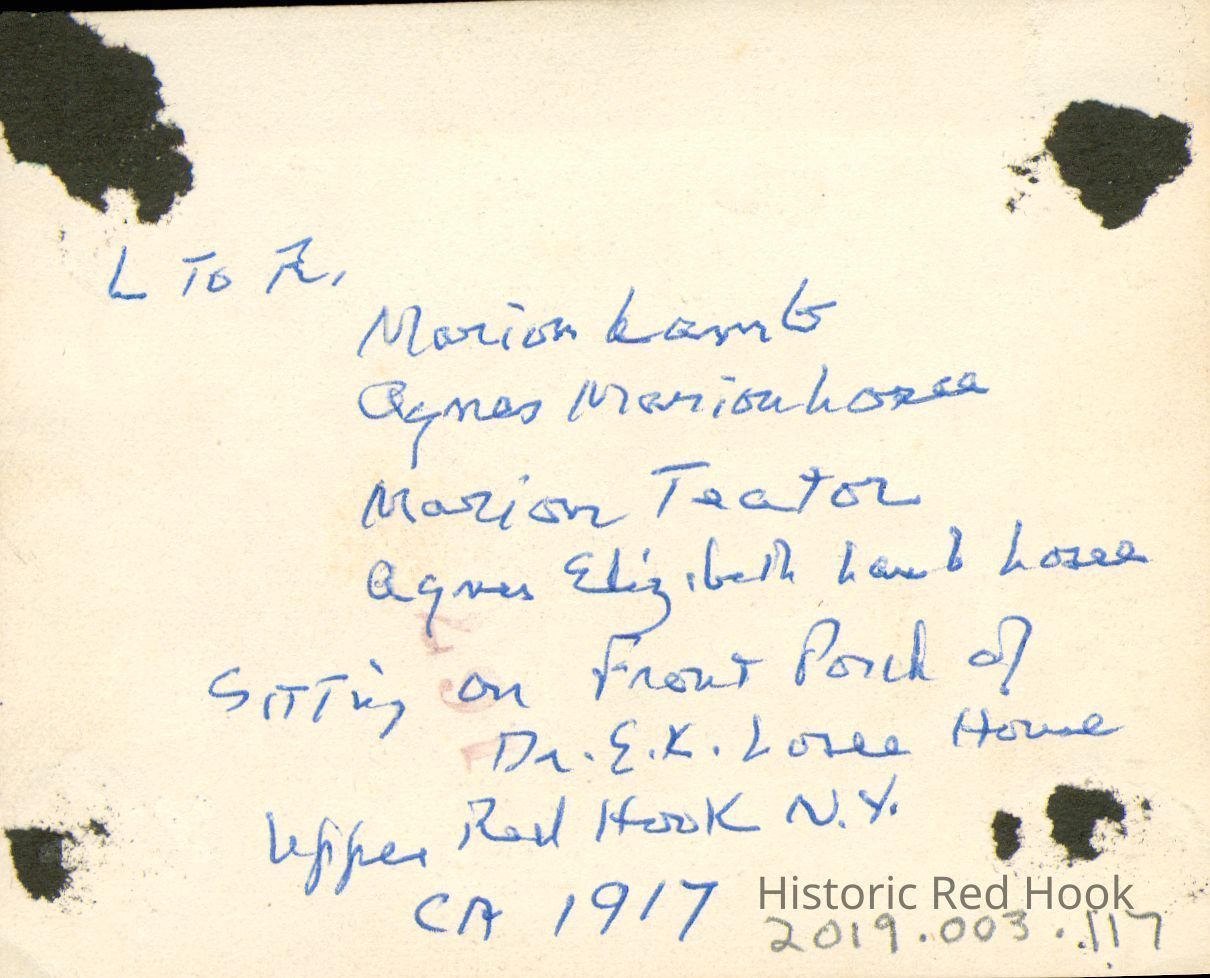 L To R.
Marion Lamb
Agnes Marion Losee
Marion Teator
Agnes Elizibeth Lamb Losee
Sitting on Front Porch of
Dr. E.K. Losee House
Upper Red Hook N.Y.
CA 1917
Historic Red Hook
2019.003.117